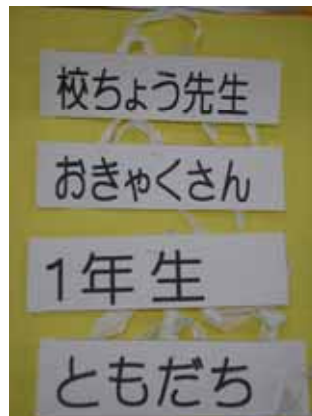 校ちょう先生
おきゃくさん
1年生
ともだち